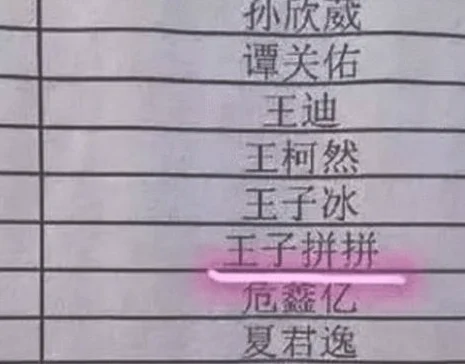 孙欣葳
谭关佑
王迪
王柯然
王子冰
王子拼拼
危鑫亿
夏君逸